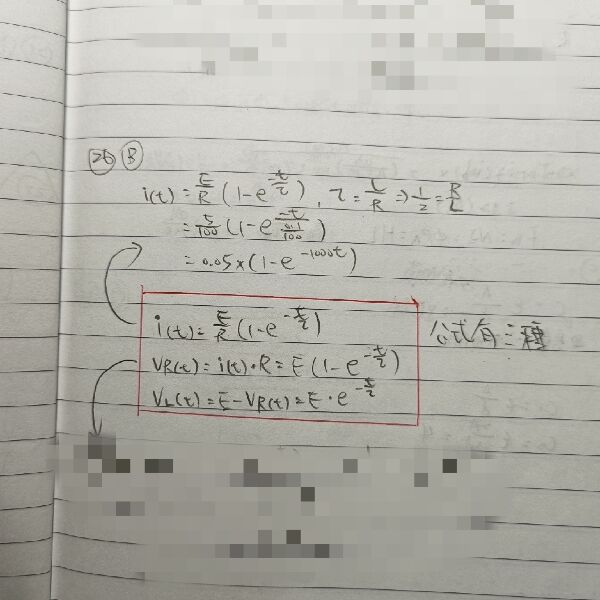 26 B
i(t) = E/R (1-e^(-t/τ)), τ = L/R ⇒ 1/τ = R/L
= 5/100 (1-e^(-t/(0.1/100)))
= 0.05×(1-e^(-1000t))
i(t) = E/R (1-e^(-t/τ))
公式有三種
VR(t) = i(t)·R = E(1-e^(-t/τ))
VL(t) = E-VR(t) = E·e^(-t/τ)